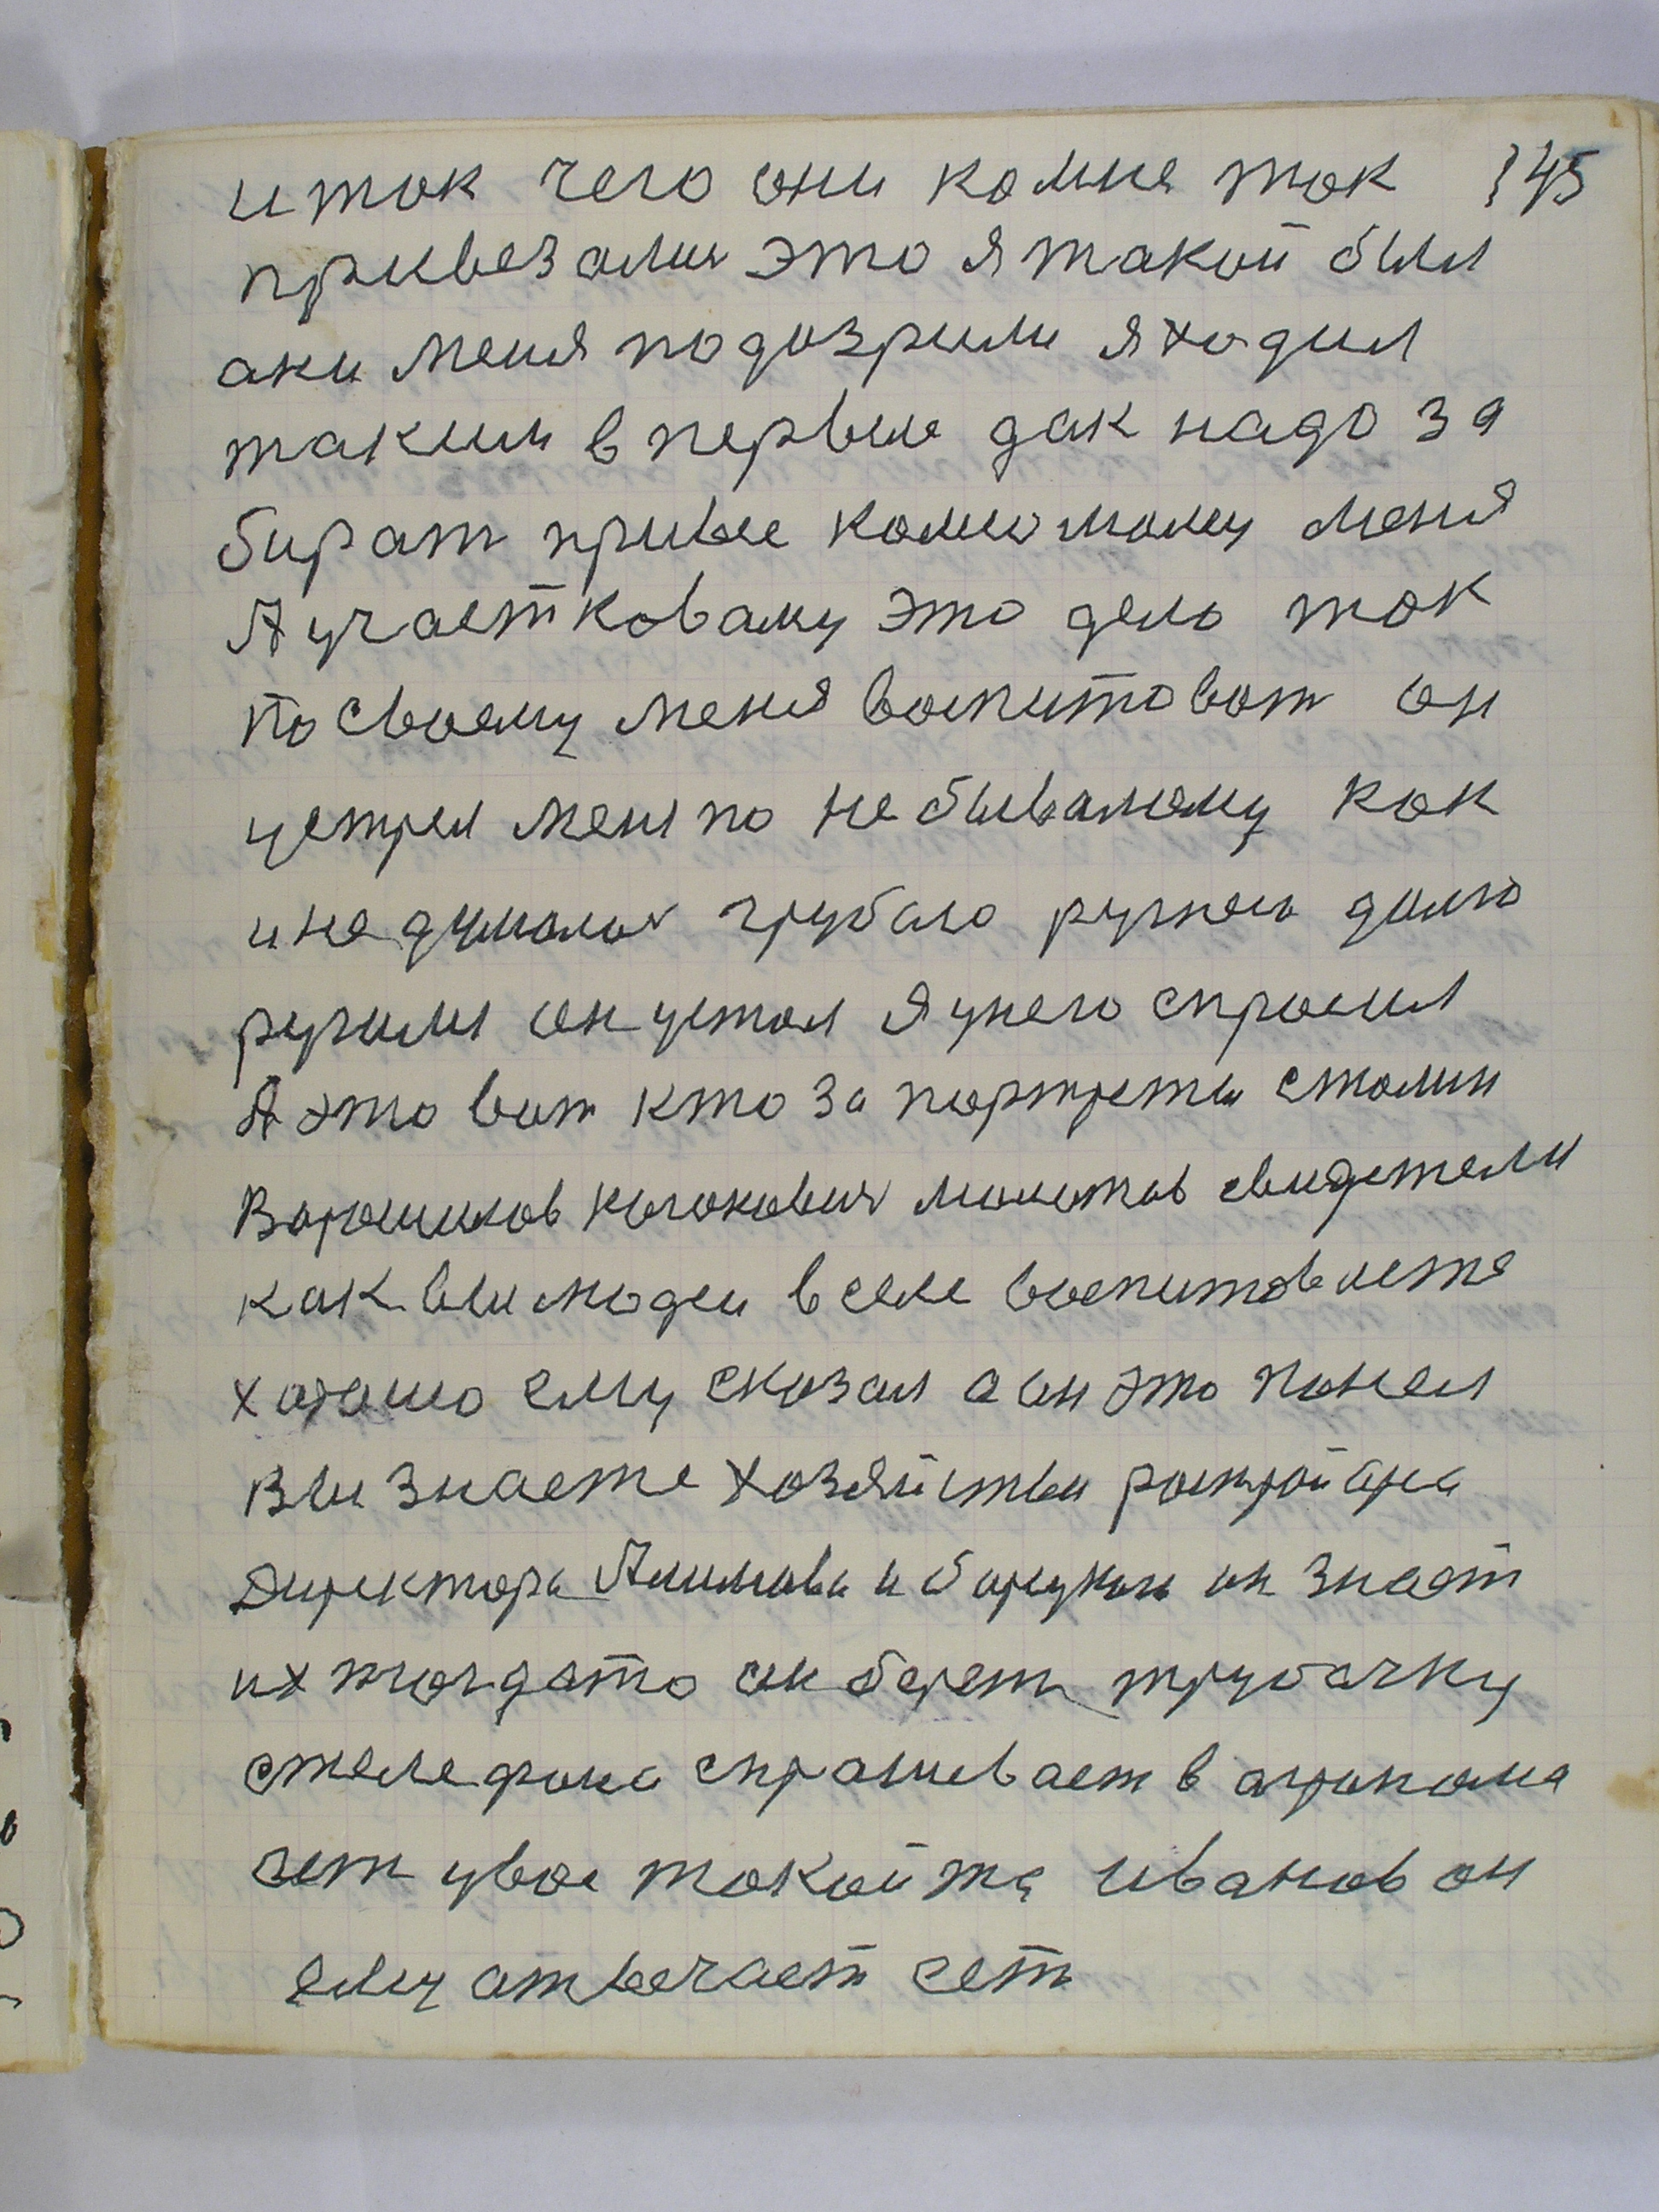 и так чего они комне так 145
привезалис это я такой был
ани меня подозрили я ходил
таким в первые дак надо за
бират привье комю маму меня
А участковаму это дело так
по своему меня воспитоват он
устрел меня по небываламу как
и не думалос грубаю ругнею долго
ругалис он устал я унего спросил
А это вот кто за портреты сталин
Варошилов Каганович молотов свидетели
как вы людеи в селе воспитоваете
харашо ему сказал а он это понел
Вы знаете хозяйствы ростройана
Директора Алимова и он знает
их тогдато он берет трубачку
стелефона спрашевает в агранома
чет у вас такойта иванов он
ему атвечает ест